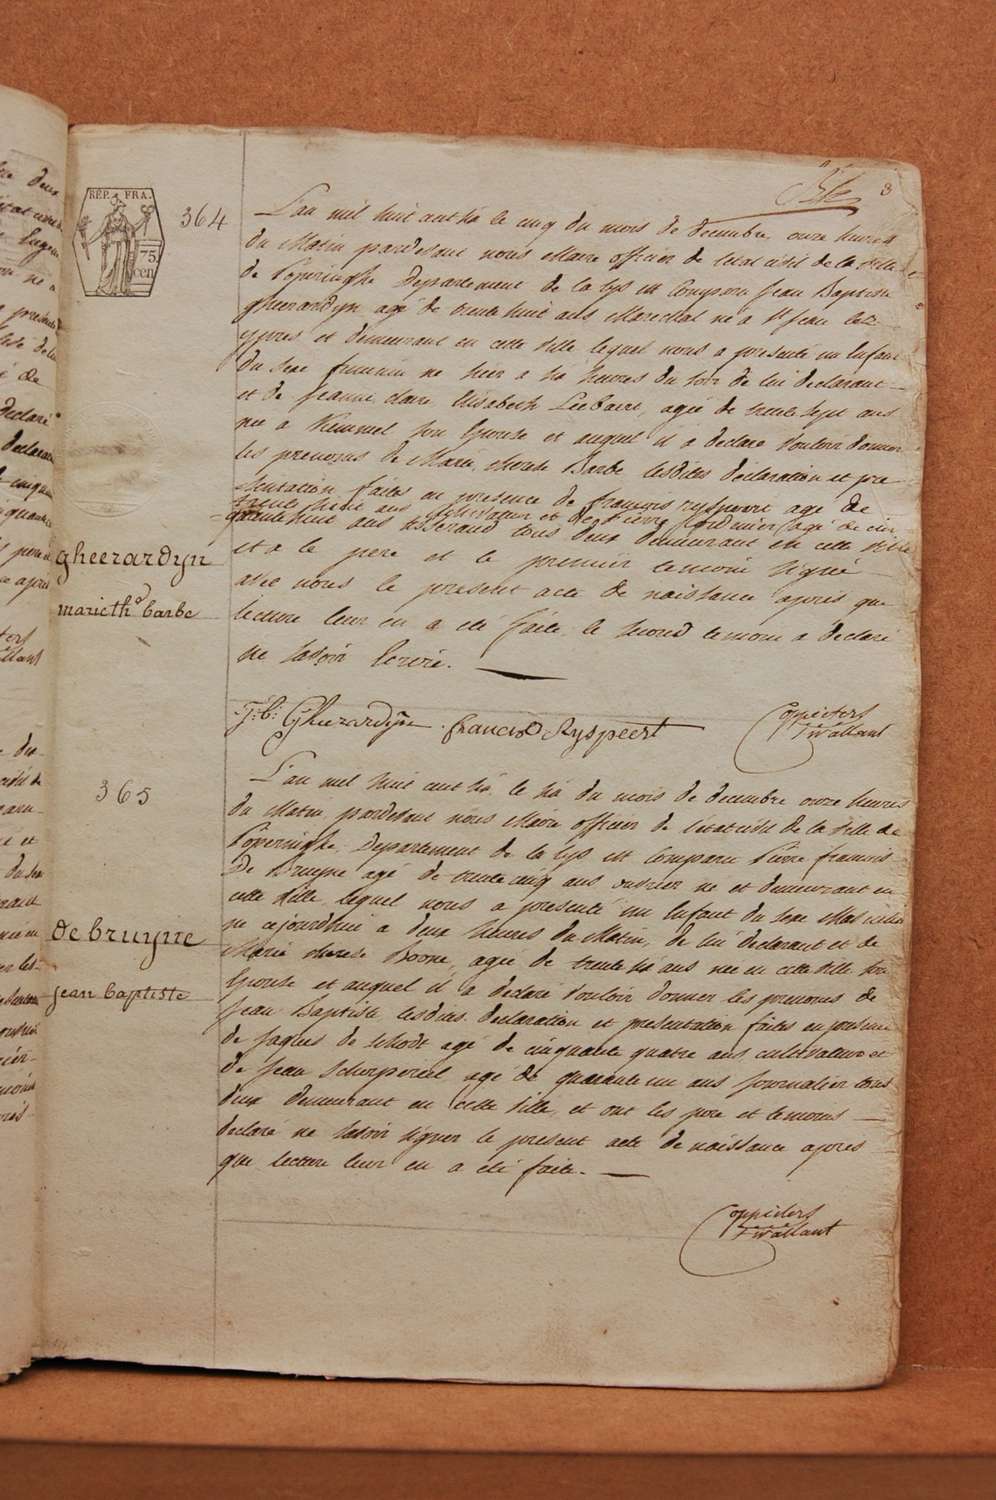 RÉP. FRA.
75
cen
8
364
L'an mil huit cent six le cinq du mois de decembre onze heures
du Matin pardevant nous Maire officier de letat civil de la ville
de Poperinghe Departement de la Lys est Comparu Jean Baptiste
gheerardyn agé de trente huit ans Marechal né a St Jean lez
ypres et demeurant en cette ville lequel nous a presenté un Enfant
du sexe feminin né hier a six heures du soir de lui declarant
et de Jeanne claire Elisabeth Leebaere, agée de trente sept ans
née a Kemmel son Epouse et auquel il a declaré vouloir donner
les prenoms de Marie therese Barbe lesdites declaration et pre
sentation faites en presence de françois ryspeert agé de
trente huit ans cultivateur et de Pierre agé de cin
quante huit ans tisserand tous deux demeurant en cette ville
et a le pere et le premier temoin signé
avec nous le present acte de naissance apres que
lecture leur en a été faite, le second temoin a declaré
ne savoir Ecrire.
gheerardyn
marie th.e barbe
J: B: Gheerardyn francis Ryspeert
Coppieters
Twallant
365
L'an mil huit cent six le six du mois de decembre onze heures
du Matin pardevant nous Maire officier de l'état civil de la ville de
Poperinghe Departement de la Lys est Comparu Pierre francois
De Bruyne agé de trente cinq ans ouvrier né et demeurant en
cette ville, lequel nous a presenté un Enfant du sexe Masculin
né cejourdhui a deux heures du Matin, de lui declarant et de
Marie therese Boone, agée de trente six ans née en cette ville son
Epouse et auquel il a declaré vouloir donner les prenoms de
Jean Baptiste lesdites declaration et presentation faites en presence
de Jaques de schodt agé de cinquante quatre ans cultivateur et
de Jean Scherpereel agé de quarante un ans Journalier tous
deux demeurant en cette ville, et ont les pere et temoins
declaré ne savoir signer le present acte de naissance apres
que lecture leur en a été faite.
de bruyne
jean baptiste
Coppieters
Twallant